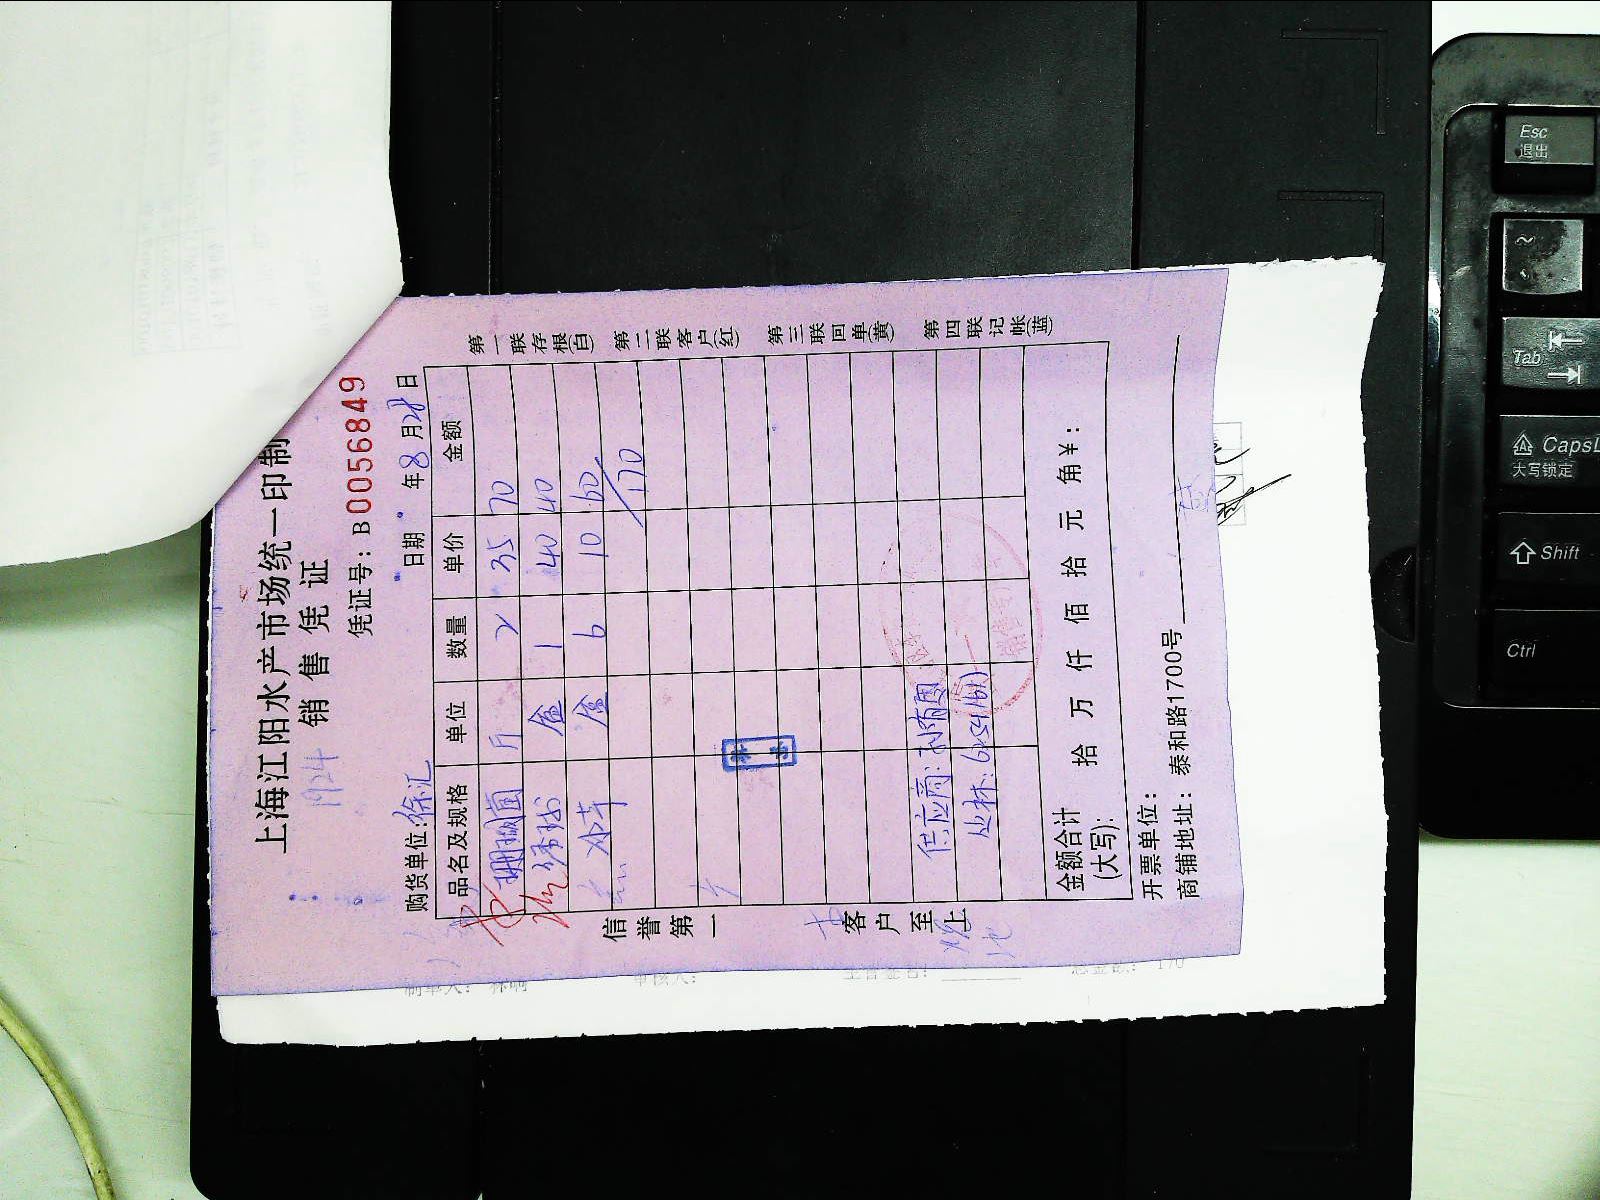 上海江阳水产市场统一印制
销售凭证
凭证号：B0056849
购货单位：徐汇 日期 年8月28日
品名及规格 单位 数量 单价 金额
珊瑚菌 斤 2 35 70
绣球 盒 1 40 40
冰草 盒 6 10 60
170
供应商：孙有国
金额合计(大写)： 拾 万 仟 佰 拾 元 角 ¥：
开票单位：
商铺地址：泰和路1700号
信誉第一 客户至上
第一联存根(白) 第二联客户(红) 第三联回单(黄) 第四联记帐(蓝)
1924
170
Esc
退出
~
Tab
CapsL
大写锁定
Shift
Ctrl